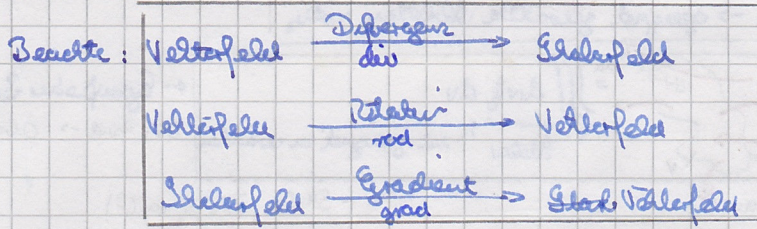 Beachte: Vektorfeld Divergenz div Skalarfeld
Vektorfeld Rotation rod Vektorfeld
Skalarfeld Gradient grad Vektorfeld